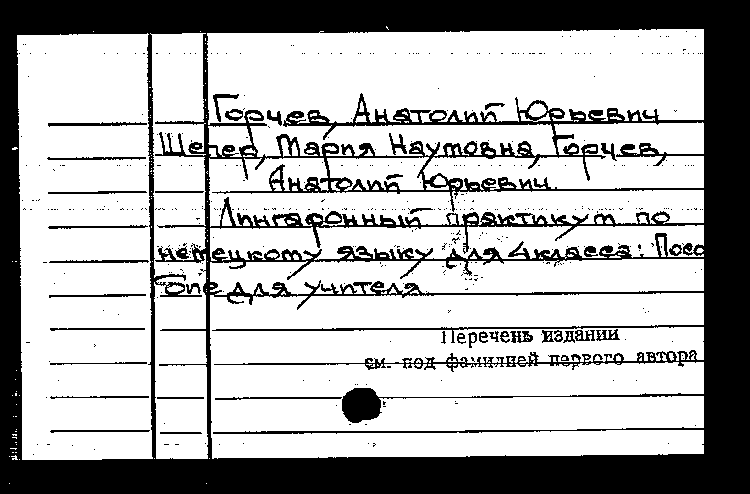 Горчев, Анатолий Юрьевич
Шепер, Мария Наумовна, Горчев,
Анатолий Юрьевич.
Лингафонный практикум по
немецкому языку для 4 класса: Посо
бие для учителя
Перечень издании
см. под фамилией первого автора